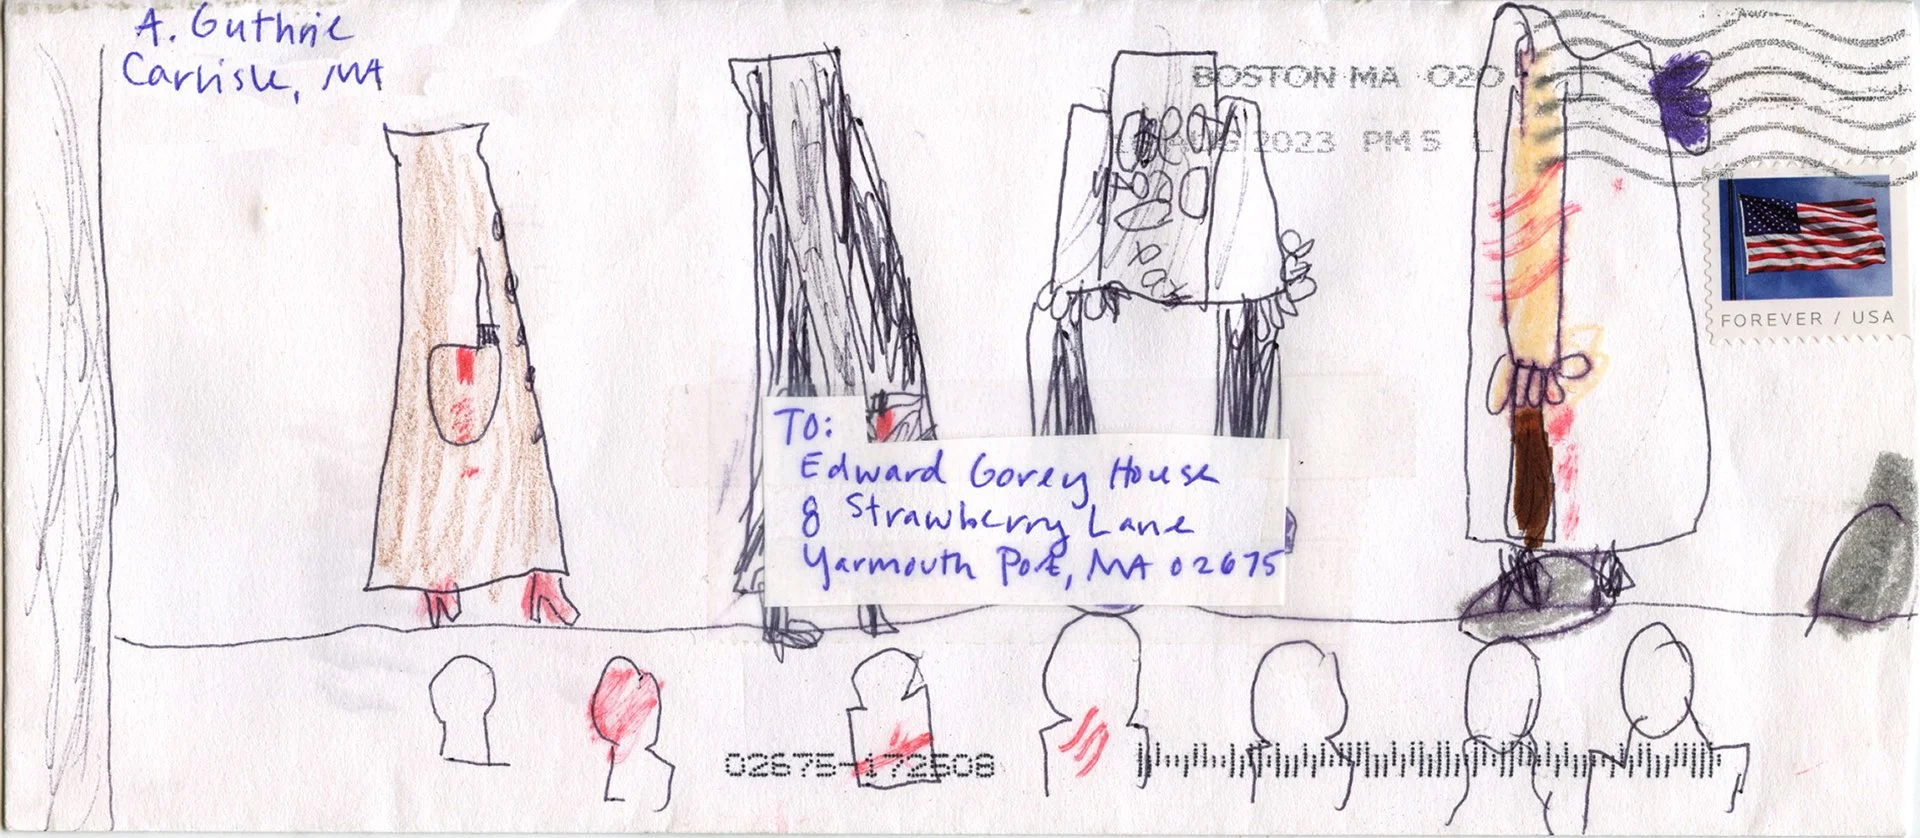 A. Guthrie
Carlisle, MA
BOSTON MA 020
2023 PM 5 L
FOREVER / USA
TO:
Edward Gorey House
8 Strawberry Lane
Yarmouth Port, MA 02675
02675-172508